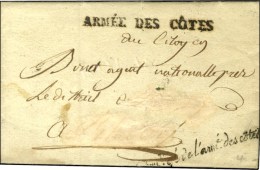 ARMÉE DES CÔTES
du Citoyen
Binet agent nationalle pres
Le district
a
de l'armé. des côtes